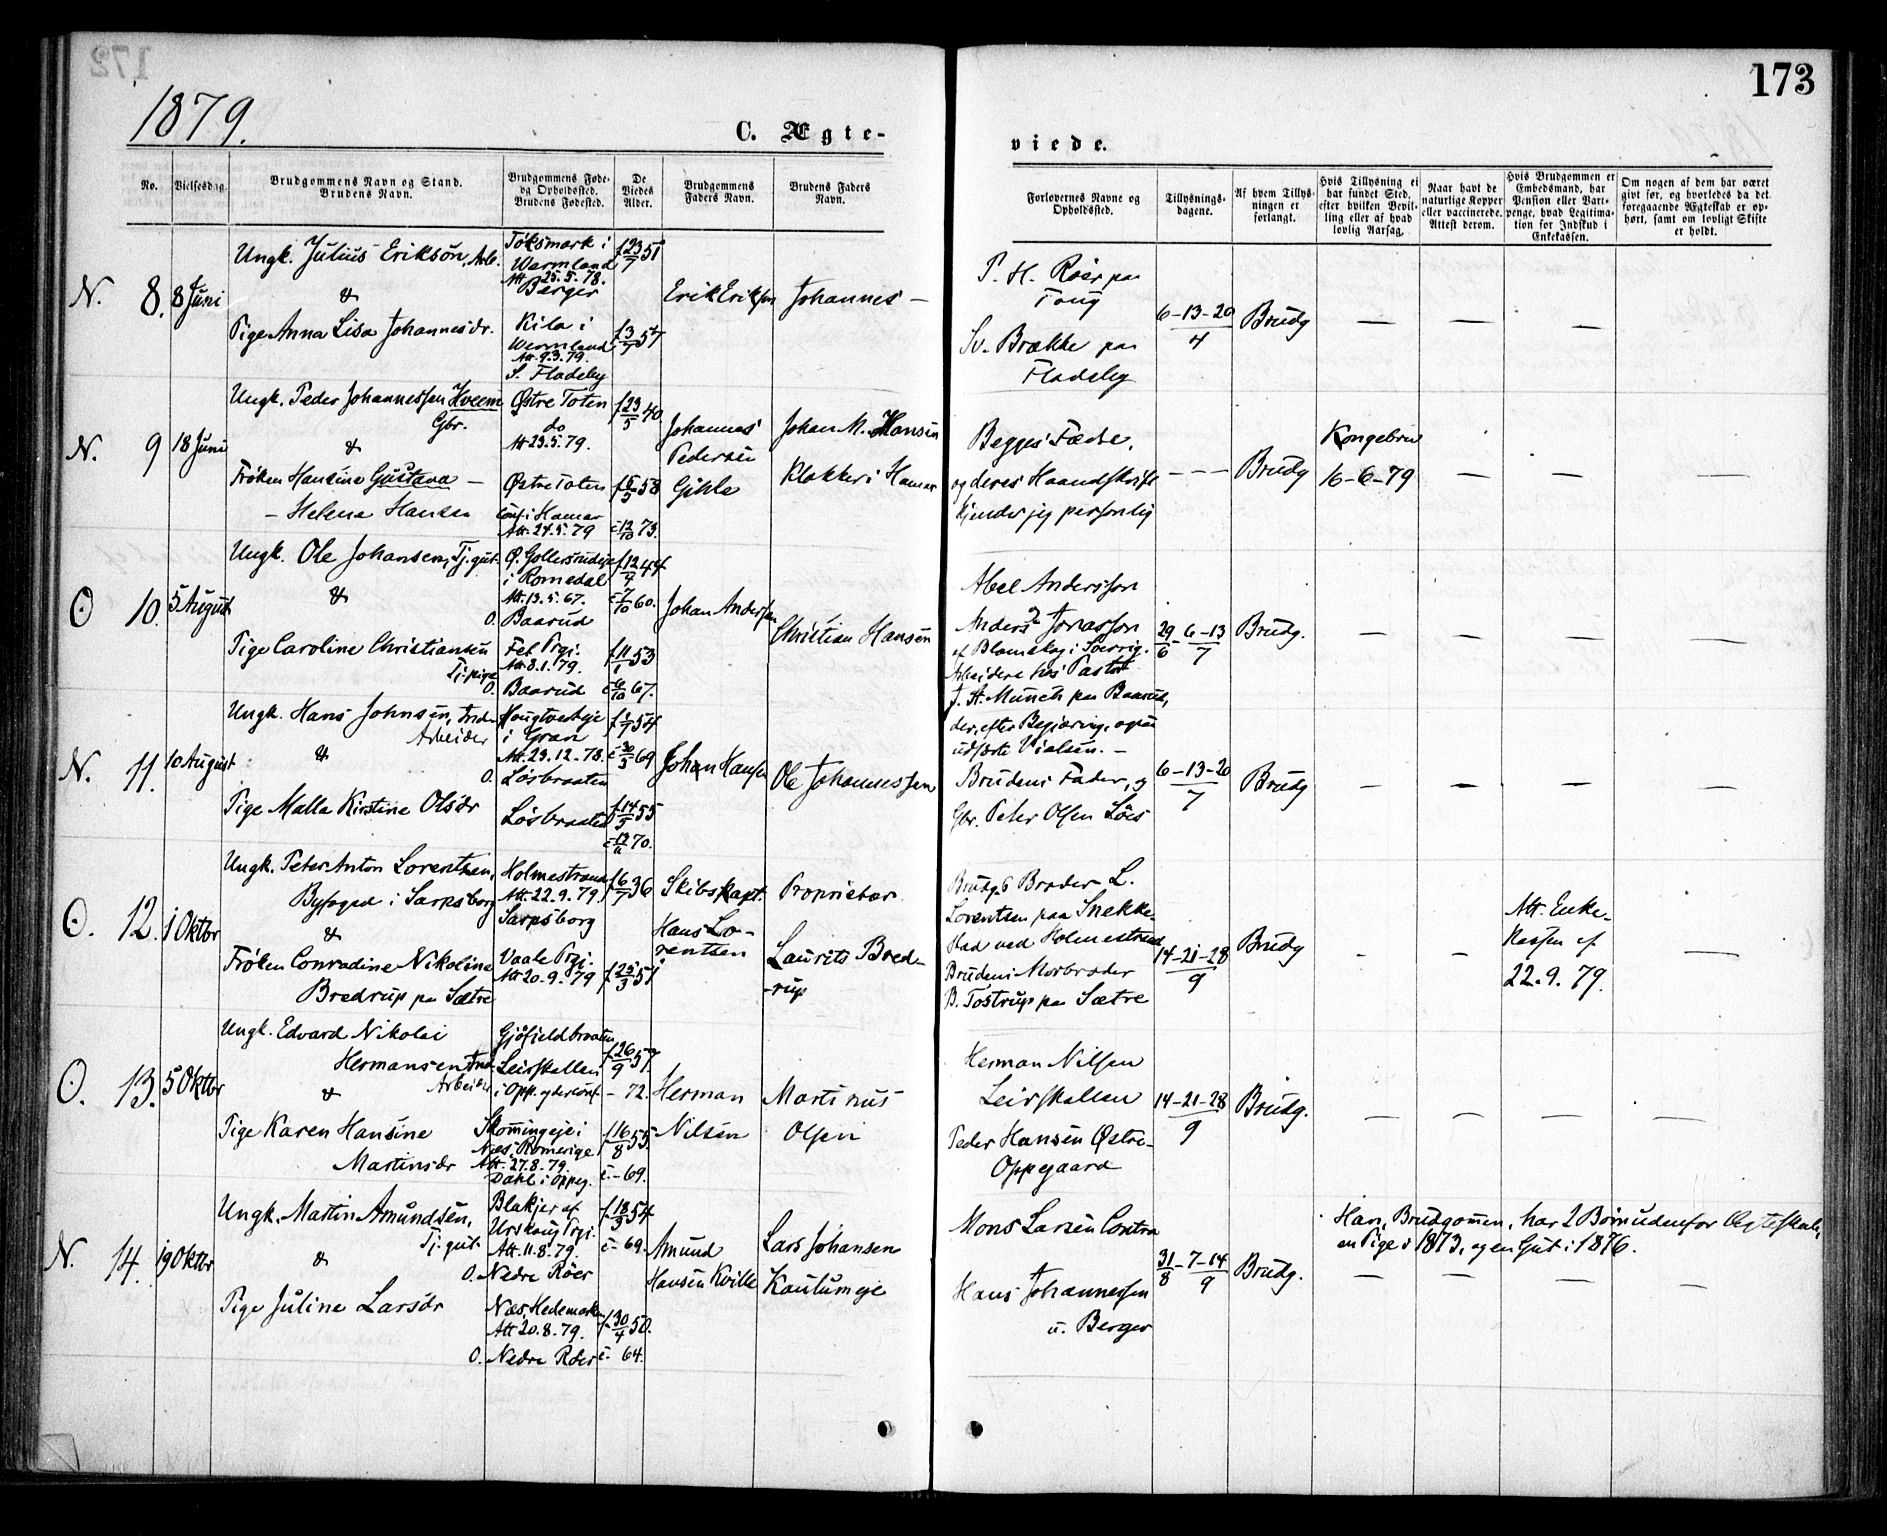 172
173
1879.
C. Ægte-
viede.
No.
Vielsesdag.
Brudgommens Navn og Stand.
Brudens Navn.
Brudgommens Føde-
og Opholdssted.
Brudens Fødested.
De
Viedes
Alder.
Brudgommens
Faders Navn.
Brudens Faders
Navn.
Forlovernes Navne og
Opholdssted.
Tillysnings-
dagene.
Af hvem Tillys-
ningen er
forlangt.
Hvis Tillysning ei
har fundet Sted,
efter hvilken Bevil-
ling eller af hvad
lovlig Aarsag.
Naar havt de
naturlige Kopper
eller vaccinerede.
Attest derom.
Hvis Brudgommen er
Embedsmand, har
Pension eller Vart-
penge, hvad Legitima-
tion for Indskud i
Enkekassen.
Om nogen af dem har været
givt før, og hvorledes da det
foregaaende Ægteskab er op-
hørt, samt om lovligt Skifte
er holdt.
N. 8. 8 Juni
Ungk. Julius Eriksøn, Arb.
&
Pige Anna Lisa Johannesdr.
Töksmark i
Wermland
Att. 25.5.78.
Berger
Kila i
Wermland
Att. 9.3.79.
S. Fladeby
f 23/7 51
f 3/7 57
Erik Erikssen
Johannes —
P. H. Röer paa
Toug
Sv. Brække paa
Fladeby
6-13-20/4
Brudg
— — — —
N. 9 18 Juni
Ungk. Peder Johannessen Hveem
Gbr.
&
Frøken Hansine Gustava —
— Helene Hansen
Østre Toten
do
Att 23.5.79.
Østre Toten
conf. i Hamar
Att. 24.5.79
f 23/5 40
f 15/5 58
c 12/10 73.
Johannes
Pedersen
Gihle
Johan M. Hansen
Klokker i Hamar
Begges Fædre,
og deres Haandskrift
kjender jeg personlig
— — —
Brudg
Kongebrev
16-6-79
— — —
O 10. 5 August
Ungk. Ole Johansen, Tj.gut.
&
Pige Caroline Christiansen
Tj.pige
Ø. Gollersrudeje
i Romedal
Att. 13.5.67.
O. Baarud
Fet Prgj.
Att. 8.1.79.
O. Baarud
f 12/4 44
c 7/10 60.
f 11/1 53
c 6/10 67.
Johan Anderssen
Christian Hansen
Abel Anderssen
Anders Jonasson
af Blomskog i Sverrig.
Arbeidere hos Pastor
J. A. Munch paa Baarud,
der, efter Begjæring, ogsaa
udførte Vielsen. —
29/6 - 6-13/7
Brudg.
— — — —
N. 11. 10 August
Ungk. Hans Johnsen, Inder.
Arbeider
&
Pige Malla Kirstine Olsdr
Hougtvedteje
i Gran
Att. 23.12.78.
O. Løsbraaten
Løsbraaten
f 1/7 54
c 30/5 69
f 14/5 55
c 13/11 70.
Johan Hansen
Ole Johannessen
Brudens Fader, og
Gbr. Peter Olsen Löes
6-13-20/7
Brudg
— — — —
O. 12. 1 Oktbr
Ungk. Peter Anton Lorentzen,
Byfoged i Sarpsborg
&
Frøken Conradine Nikoline
Bredrup paa Sætre
Holmestrand
Att. 22.9.79.
Sarpsborg
Vaale Prgj.
Att 20.9.79
f 6/7 36
f 25/3 51
Skibskapt.
Hans Lo-
rentsen
Proprietær
Laurits Bred-
-rup
Brudg.s Broder L.
Lorentsen paa Snekke-
stad ved Holmestrand
Brudens Morbroder
B. Tostrup paa Sætre
14-21-28/9
Brudg
- -
Att. Enke-
kassen af
22.9.79.
—
O. 13. 5 Oktbr
Ungk. Edvard Nikolai
Hermansen Ind.
Arbeider
&
Pige Karen Hansine
Martinsdr
Gjøfjeldbraaten
Leirskallen
i Opp.
Skomingeje i
Næs, Romerige
Att. 27.8.79.
Dahl i Oppeg.
f 26/9 57.
— 72.
f 16/8 55.
c — 69.
Herman
Nilsen
Martinus
Olsen
Herman Nilsen
Leirskallen
Peder Hansen Østre-
Oppegaard
14-21-28/9
Brudg.
— — — —
N. 14. 19 Oktbr
Ungk. Martin Amundsen,
Tj.gut.
&
Pige Juline Larsdr
Blakjer af
Urskoug Prgj.
Att. 11.8.79.
O. Nedre Röer
Næs, Hedemarken
Att 20.8.79.
O. Nedre Röer
f 18/3 54
c — 69.
f 30/4 50.
c — 64.
Amund
Hansen Kville
Lars Johansen
Kaulumeje
Mons Larsen Contra
Hans Johannessen
u. Berger
31/8 - 7-14/9
Brudg.
Han, Brudgommen, har 2 Børn udenfor Ægteskab,
en Pige i 1873, og en Gut i 1876.
— — — —